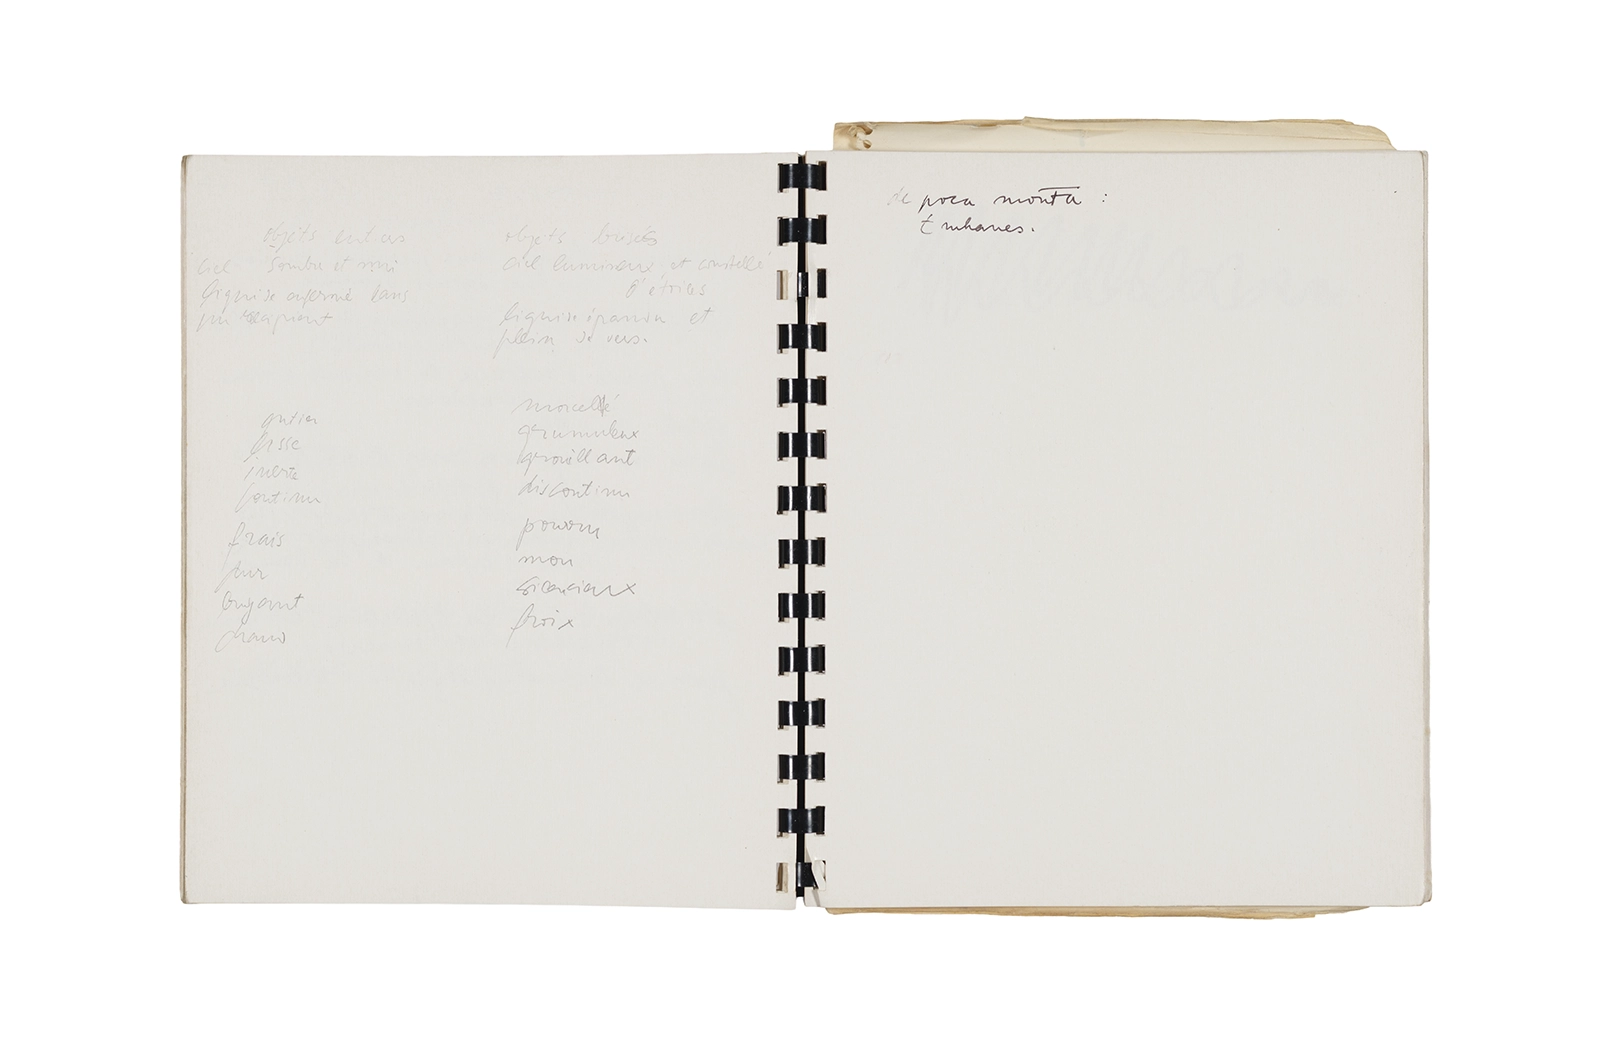 objets entiers
ciel sombre et uni
liquide enfermé dans
un récipient
objets brisés
ciel lumineux et constellé
d'étoiles
liquide épandu et
plein de vers.
entier
lisse
inerte
continu
frais
pur
bruyant
chaud
morcelé
grumuleux
grouillant
discontinu
pourri
mou
silencieux
froix
de poca monta :